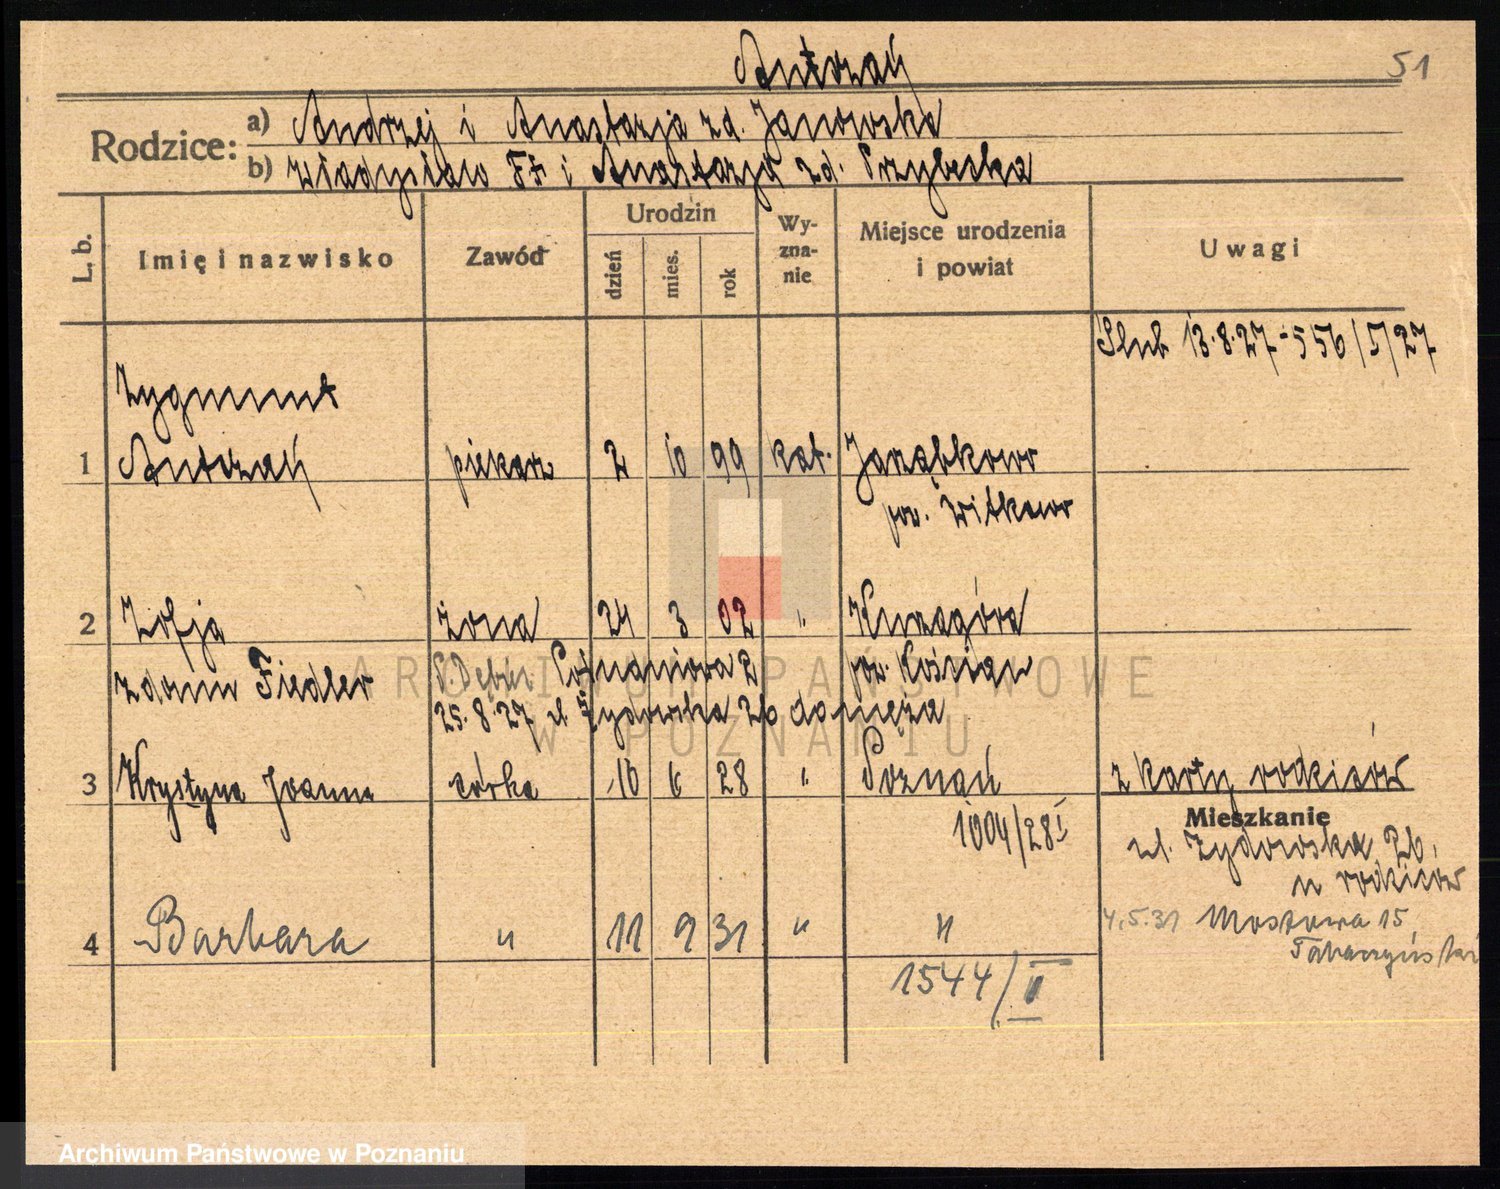 Antczak
51
Rodzice: a) Andrzej i Anastazja zd. Janowska
b) Władysław Ft i Anastazja zd. Przybecka
L. b.
Imię i nazwisko
Zawód
Urodzin
dzień
mies.
rok
Wy-
zna-
nie
Miejsce urodzenia
i powiat
Uwagi
Slub 13.8.27 - 556/5/27
Zygmunt
1 Antczak piekarz 2 10 99 kat. Jarząbkowo
pow. Witkowo
2 Zofja żona 24 3 02 " Kurzagóra
zdomu Fiedler Poznaniowa 2 pow. Kościan
25.8.27 ul. Żydowska 26 do męża
3 Krystyna Joanna córka 16 6 28 " Poznań z karty rodziców
1004/28 I
Mieszkanie
ul. Żydowska 26,
u rodziców
4 Barbara " 11 9 31 " " 4.5.31 Mostowa 15,
1544/II
ARCHIWUM PAŃSTWOWE
W POZNANIU
Archiwum Państwowe w Poznaniu